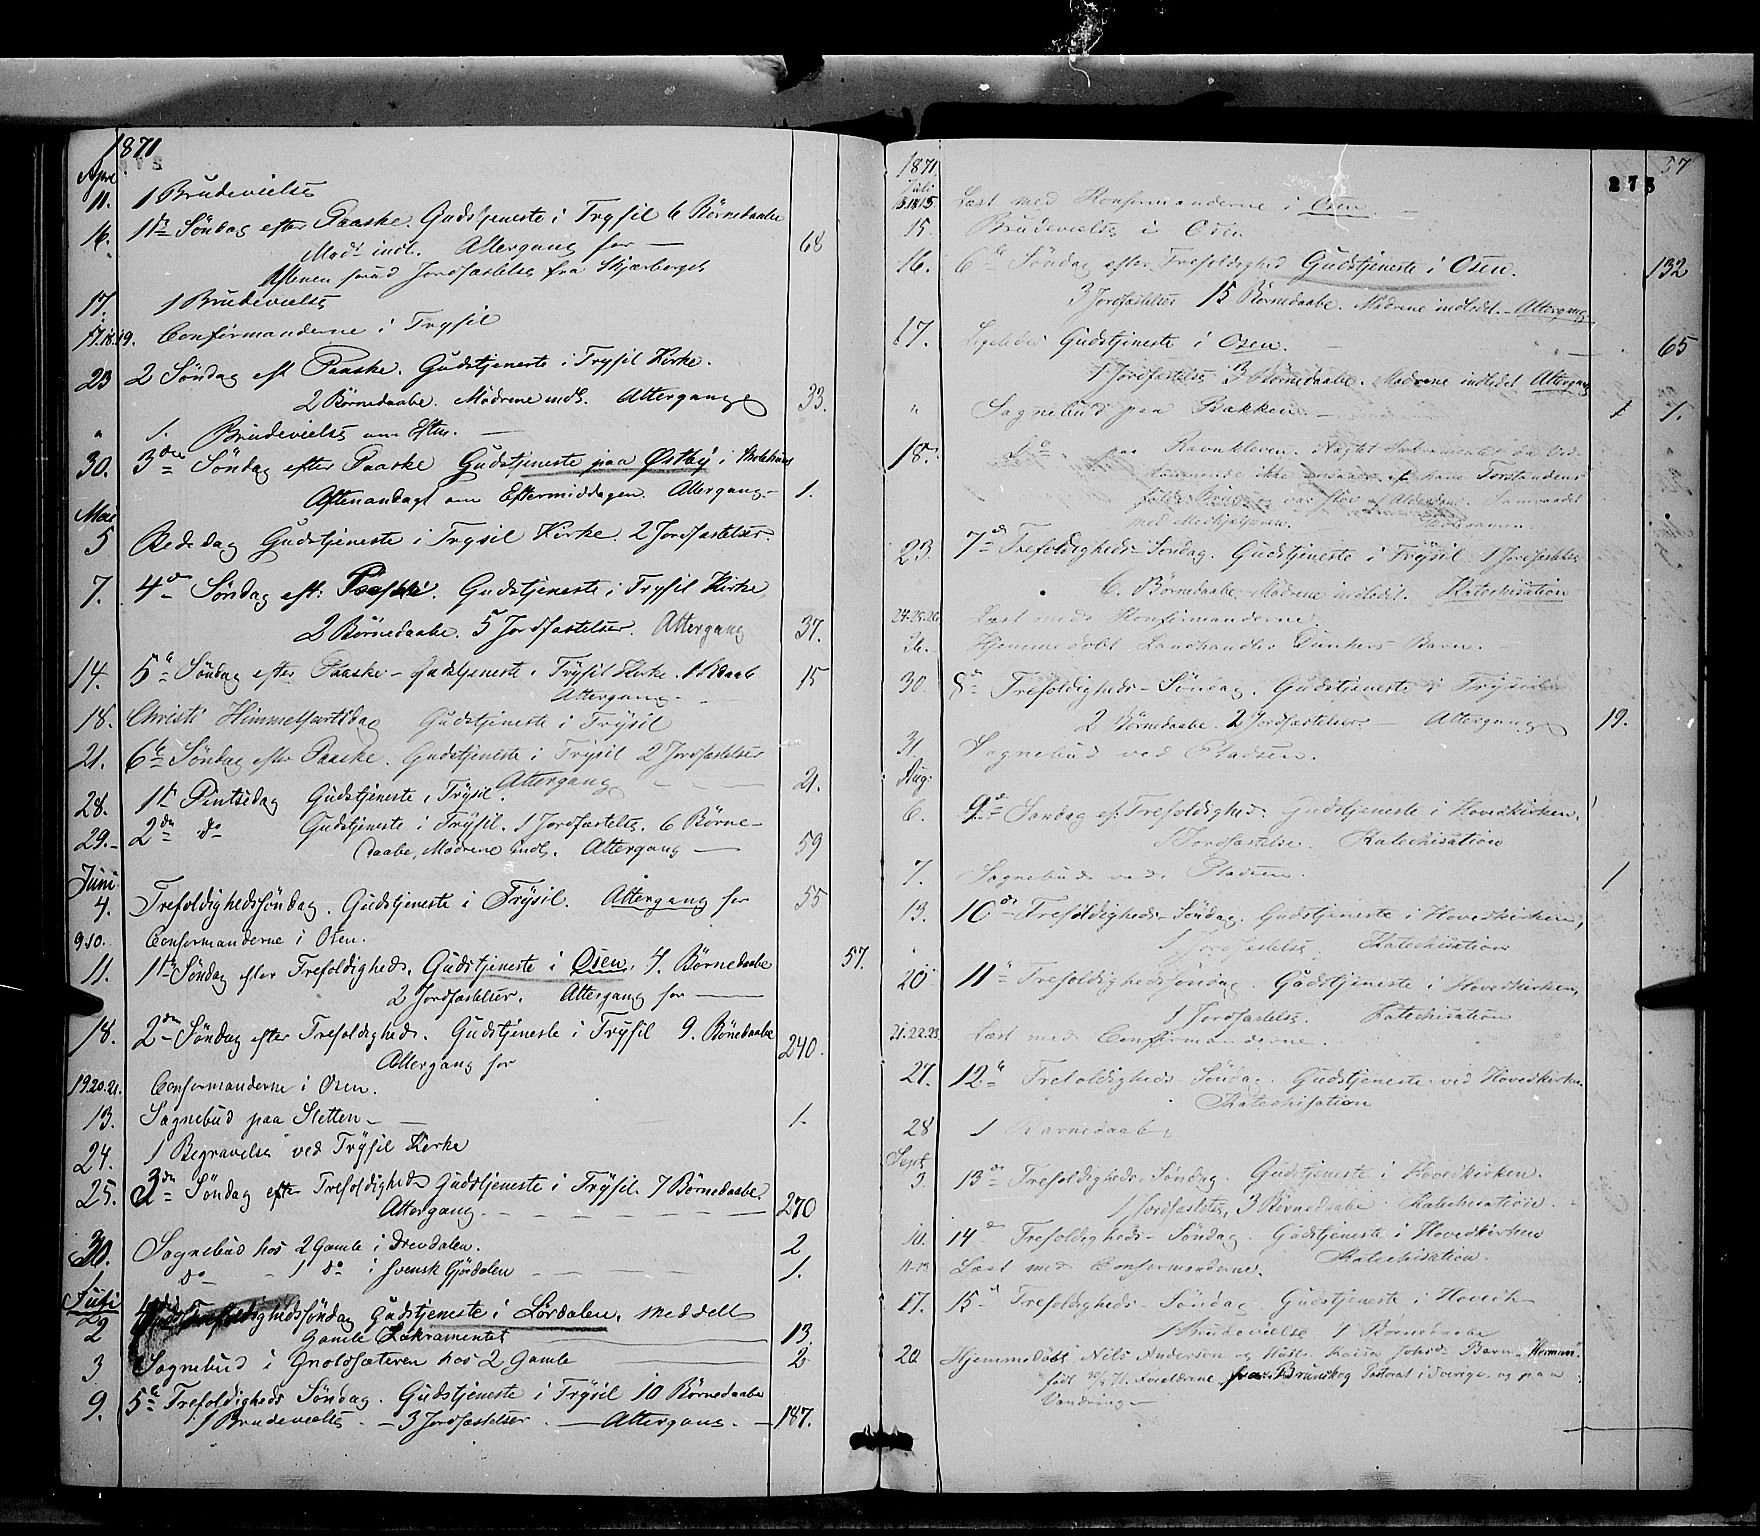 1871
April
11. 1 Brudevielse
16. 1ste Søndag efter Paaske. Gudstjeneste i Trysil 6 Børnedaabe
Mødr. indl. Altergang for — 68
Aftenen forud Jordfæstelse fra Skjærberget
17. 1 Brudevielse
17.18.19. Confirmanderne i Trysil
23 2 Søndag eft Paaske. Gudstjeneste i Trysil Kirke.
2 Børnedaabe. Mødrene indl. Altergang 33.
" 1. Brudevielse om Eftm.
30. 3die Søndag efter Paaske Gudstjeneste paa Østby i Skolehuus
Aftenandagt om Eftermiddagen. Altergang. 1.
Mai
5 Bededag Gudstjeneste i Trysil Kirke. 2 Jordfæstelser.
7. 4de Søndag eft: Paaske. Gudstjeneste i Trysil Kirke
2 Børnedaabe. 5 Jordfæstelser. Altergang 37.
14. 5te Søndag efter Paaske – Gudstjeneste i Trysil Kirke. 1 Bdaab
Altergang — 15
18. Christi Himmelfartsdag Gudstjeneste i Trysil
21. 6te Søndag efter Paaske. Gudstjeneste i Trysil 2 Jordfæstelser
Altergang — 21.
28. 1ste Pintsedag Gudstjeneste i Trysil.
29. 2den do Gudstjeneste i Trysil. 1 Jordfæstelse. 6 Børne-
daabe, Mødrene indl. Altergang — 59
Juni
4. Trefoldighedssøndag. Gudstjeneste i Trysil. Altergang for 55
9.10. Confirmanderne i Osen.
11. 1ste Søndag efter Trefoldigheds. Gudstjeneste i Osen. 4. Børnedaabe 57.
2 Jordfæstelser. Altergang for —
18. 2den Søndag efter Trefoldigheds. Gudstjeneste i Trysil 9. Børnedaabe
Altergang for 240.
19.20.21. Confirmanderne i Osen.
13. Sognebud paa Sletten — 1.
24. 1 Begravelse ved Trysil Kirke
25. 3die Søndag efter Trefoldigheds Gudstjeneste i Trysil. 7 Børnedaabe.
Altergang — 270
30. Sognebud hos 2 Gamle i Drevdalen. 2
1 do 1 do i Svensk Gjørdalen — 1.
Juli
2 4de Trefoldighedssøndag Gudstjeneste i Lørdalen. Meddelt
Gamle Sakramentet 13.
3 Sognebud i Gnoldsæteren hos 2 Gamle 2
9. 5te Trefoldigheds Søndag. Gudstjeneste i Trysil 10 Børnedaabe
1 Brudevielse. – 3 Jordfæstelser. — Altergang. — 187.
57
1871 273
Juli
13.14.15. Læst med Konfirmanderne i Osen.
15. Brudevielse i Osen
16. 6te Søndag efter Trefoldighed Gudstjeneste i Osen. 132
3 Jordfæstelser 15 Børnedaabe. Mødrene indledet. – Altergang
17. Ligeledes Gudstjeneste i Osen. 65
1 Jordfæstelse 3 Børnedaabe. Mødrene indledet Altergang
" Sognebud paa Bakken. 1 1.
18. Do paa Ravnkleven. Nægtet Sakramentet da Ved-
kommende ikke ansaaes at have Forstandens
fulde Brug og var sløv af Alderdom. Samraadet
med Medhjelperen.
23 7de Trefoldigheds Søndag. Gudstjeneste i Trysil 1 Jordfæstelse
6. Børnedaabe. Mødrene indledet. Katechisation
24.25.26. Læst med Konfirmanderne.
26. Hjemmedøbt Landhandler Dunkers Barn.
30. 8de Trefoldigheds – Søndag. Gudstjeneste i Trysil
2 Børnedaabe. 2 Jordfæstelser — Altergang 19.
31 Sognebud ved Pladsen.
Aug:
6. 9de Søndag ef. Trefoldighed. Gudstjeneste i Hovedkirken.
1 Jordfæstelse. Katechisation
7. Sognebud ved Pladsen. 1
13. 10de Trefoldigheds Søndag. Gudstjeneste i Hovedkirken,
1 Jordfæstelse. Katechisation
20 11te Trefoldighedssøndag. Gudstjeneste i Hovedkirken,
1 Jordfæstelse. Katechisation
21.22.23. Læst med Confirmanderne.
27. 12te Trefoldigheds Søndag. Gudstjeneste ved Hovedkirken.
Katechisation
28 1 Barnedaab,
Sept.
3. 13de Trefoldigheds Søndag. Gudstjeneste i Hovedkirken.
1 Jordfæstelse, 3 Børnedaabe. Katechisation.
10. 14de Trefoldigheds – Søndag. Gudstjeneste i Hovedkirken
Katechisation.
11-13 Læst med Confirmanderne.
17. 15de Trefoldigheds – Søndag Gudstjeneste i Hovedk
1 Brudevielse 1 Børnedaabe
20 Hjemmedøbt Nils Anderson og Hustr. Kaisa Johsd. Barn "Herman"
født /71. Forældrene fra Brunskog Pastorat i Sverige og paa
Vandring –